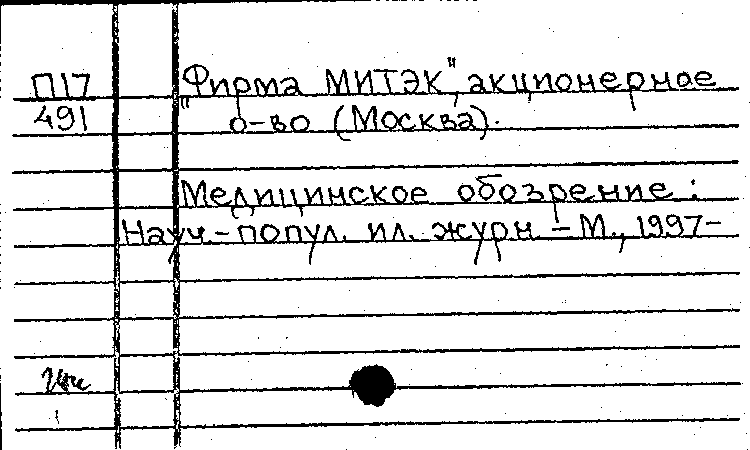 П17
491
"Фирма МИТЭК", акционерное
о-во (Москва).
Медицинское обозрение:
Науч.-попул. ил. журн. – М., 1997-